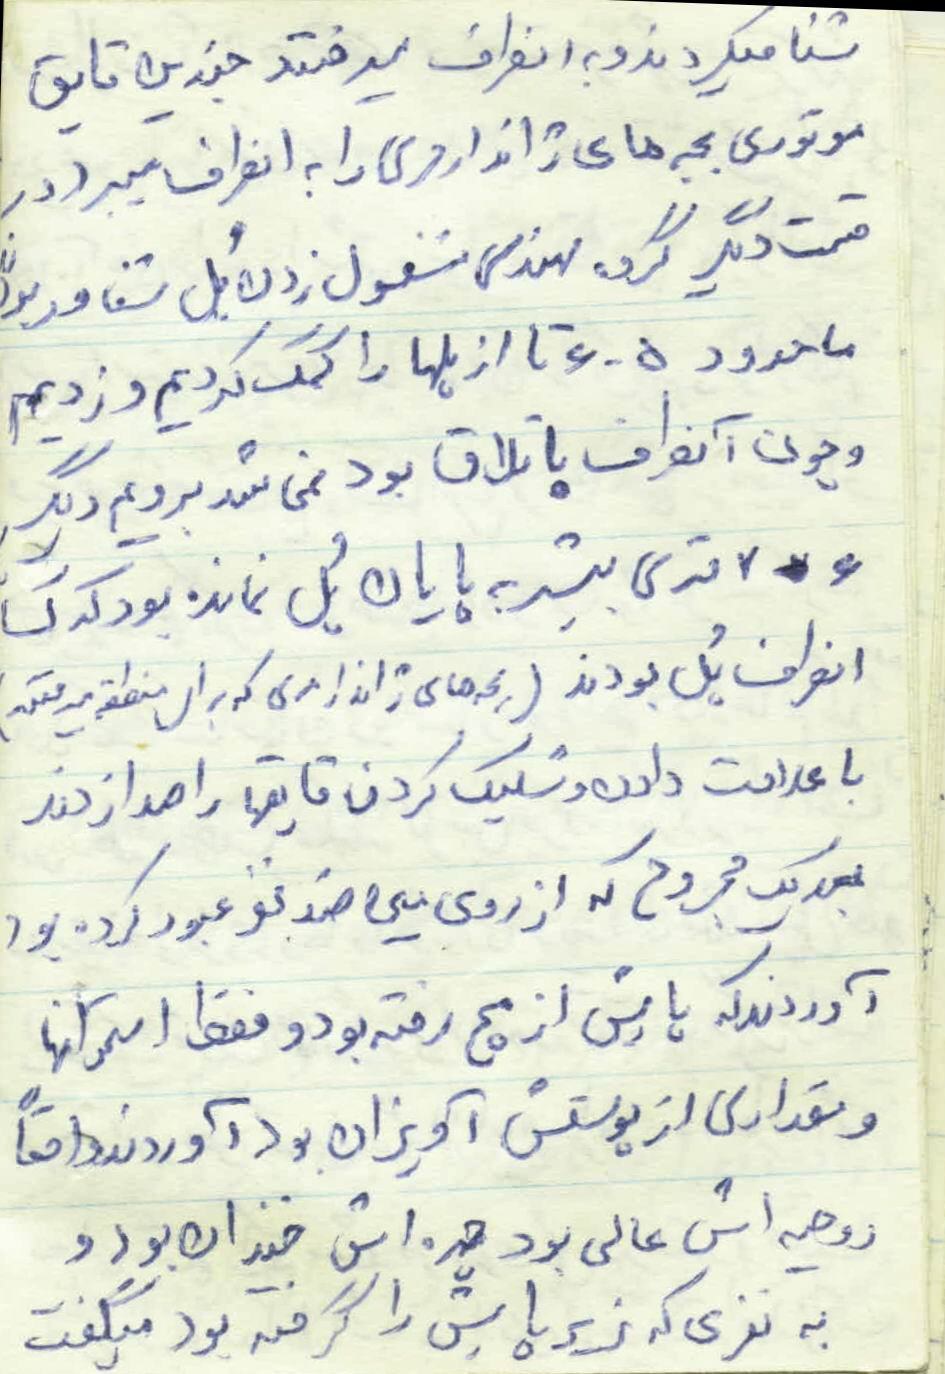 شنا میکردند و به انطرف میرفتند چندین قایق
موتوری بچه های ژاندارمری را به انطرف میبرد در
قسمت دیگر گروه مهندسی مشغول زدن پُل شناور بود
ما حدود ۵-۶ تا از پلها را کمک کردیم و زدیم
و چون آنطرف باتلاق بود نمی شد برویم دیگر
۶ ۷ متری بیشتر به پایان پُل نمانده بود که
انطرف پُل بودند (بچه های ژاندارمری که به آن منطقه میرفتند)
با علامت دادن و شلیک کردن قایقها را صدا زدند
بعد یک مجروح که از روی مین ضد نفر عبور کرده بود
آوردند که پایش از مچ رفته بود و فقط
و مقداری از پوستش آویزان بود آوردند واقعاً
روحیه اش عالی بود چهره اش خندان بود و
به نفری که زیر پایش را گرفته بود میگفت